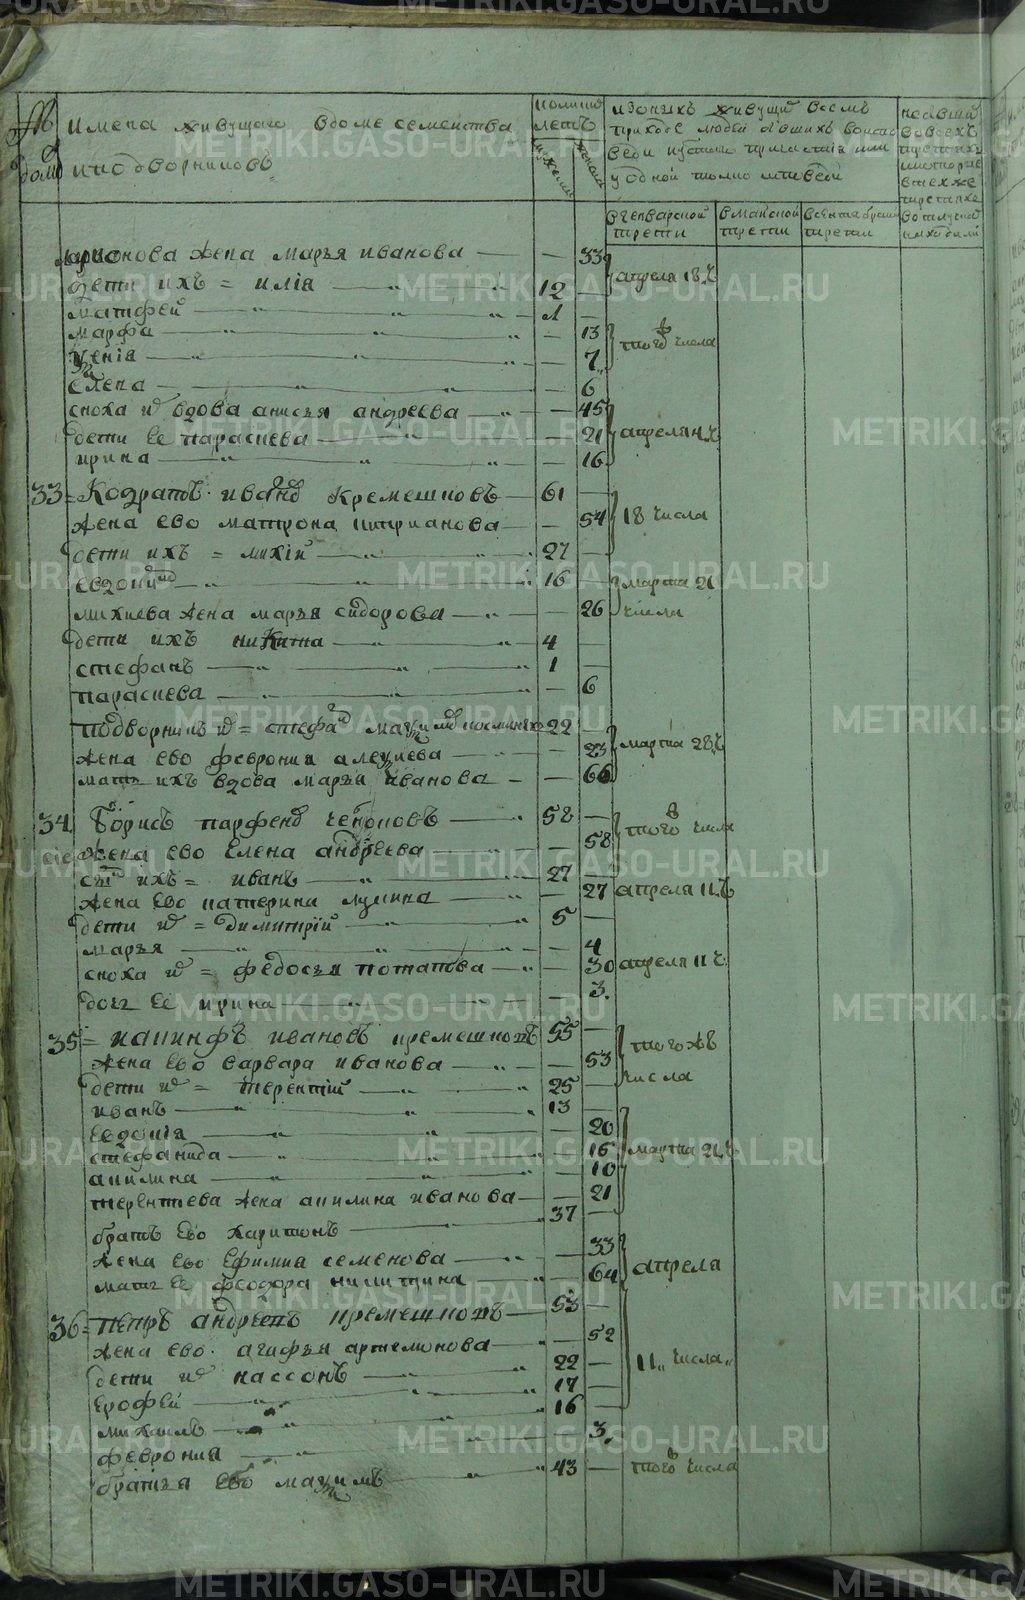 № домов
имена живущаго вдоме семейства иподворниковъ
коликимъ летъ
мужеска
женска
изонихъ живущiй всемъ
приходе людей бывшихъ воиспо
веди исвятаго причастiя или
уодной токмо исповеди
вгенварской трети
вмайской трети
всентябрской трети
Ларионова жена марья иванова — 33
апреля 18 ч
дети ихъ = илiя 12
матфей 1
марфа 13
того числа
ксенiя 7
елена 6
сноха иб вдова анисья андреева 45
дети ее параскева 21
апреля ч
ирина 16
33 = Кодратъ ивановъ Кремешковъ 61
жена ево матрона киприанова 54
18 числа
дети ихъ = михiй 27
евдоким 16
марта 21
числа
михиева жена марья сидорова 26
дети ихъ никита 4
стефанъ 1
параскева 6
подворникъ = стефа максимов 22
жена ево феврония алексиева 23
марта 28 ч
мать ихъ вдова марья иванова 66
34 Борисъ парфенов 58
того числа
жена ево Елена андреева 58
сын ихъ = иванъ 27
жена ево катерина лукина 27
апреля 11 ч
дети = димитрiй 5
марья 4
сноха = федосья потапова 30
апреля 11 ч
дочь ее ирина 3
35 = иакинфъ ивановъ кремешковъ 55
того жъ
числа
жена ево варвара иванова 53
дети = терентiй 25
иванъ 13
евдокiя 20
стефанида 16
марта 21 ч
акилина 10
терентева жена акилина иванова 21
братъ ево харитонъ 37
жена ево Ефимия семенова 33
апреля
мать ее феодора никитина 64
36 = петръ андреевъ кремешковъ 53
жена ево агафья артемонова 52
дети нассонъ 22
11 числа
ерофей 17
михаилъ 16
феврония 3
братья ево максимъ 43
того числа
METRIKI.GASO-URAL.RU